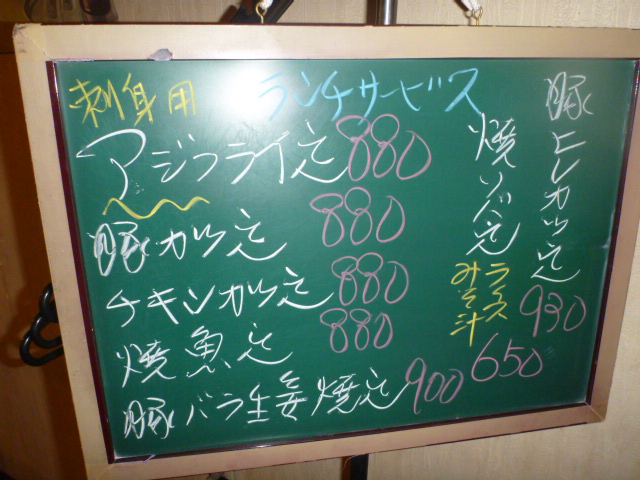 ランチサービス
刺身用
アジフライ定 880
豚かつ定 880
チキンかつ定 880
焼魚定 880
豚バラ生姜焼定 900
豚ヒレかつ定 930
焼ソバ定 650
ライス
みそ汁